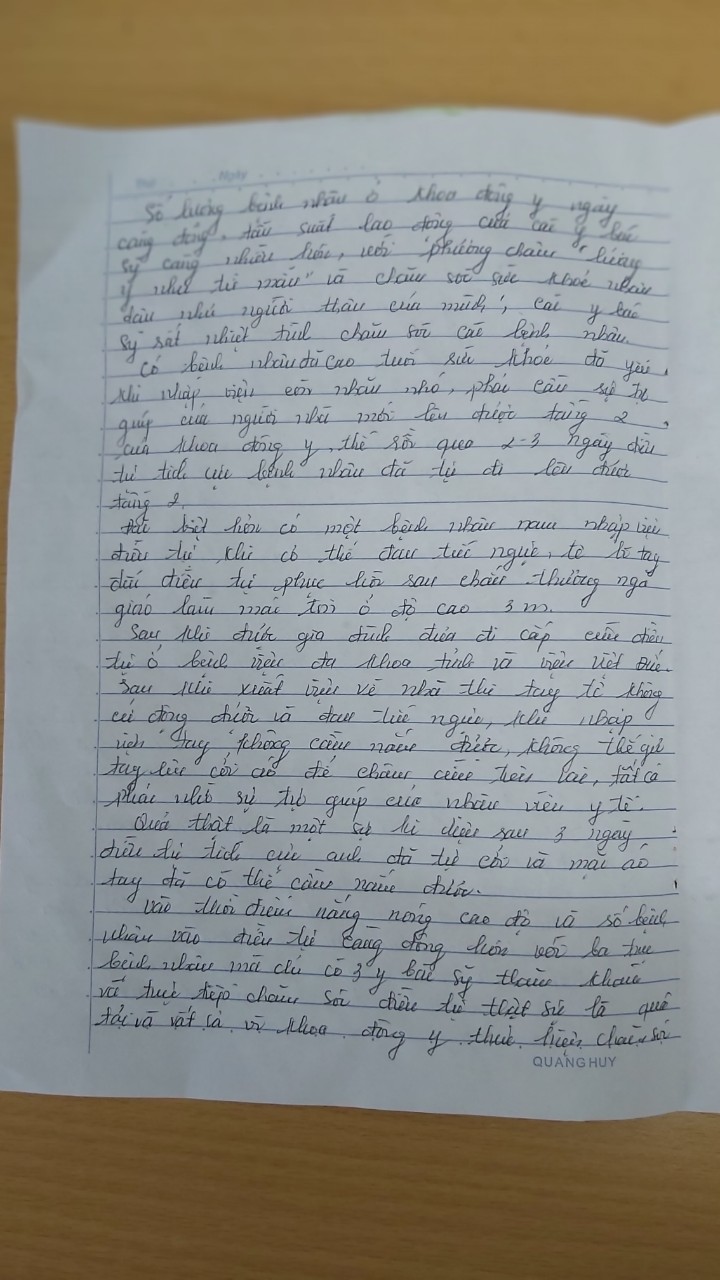 Ngày
Số lượng bệnh nhân ở khoa đông y ngày
càng đông, tần suất lao động của các y bác
sỹ càng nhiều hơn, với "phương châm "lương
y như từ mẫu" và chăm sóc sức khoẻ nhân
dân như người thân của mình", các y bác
sỹ rất nhiệt tình chăm sóc các bệnh nhân.
Có bệnh nhân đã cao tuổi sức khoẻ đã yếu,
khi nhập viện còn nhăn nhó, phải cần sự trợ
giúp của người nhà mới lên được tầng 2
của khoa đông y, thế rồi qua 2-3 ngày điều
trị tích cực bệnh nhân đã tự đi lên được
tầng 2.
Đặc biệt hơn có một bệnh nhân nam nhập viện
điều trị khi có thể đau tức ngực, tê bì tay
điều trị phục hồi sau chấn thương ngã
giáo làm mái tôn ở độ cao 3 m.
Sau khi được gia đình đưa đi cấp cứu điều
trị ở bệnh viện đa khoa tỉnh và viện việt Đức.
Sau khi xuất viện về nhà thì tay tê không
cử động được và đau tức ngực, khi nhập
viện tay không cầm nắm được, không thể giơ
tay lên cởi áo để châm cứu trên vai, tất cả
phải nhờ sự trợ giúp của nhân viên y tế.
Quả thật là một sự kì diệu sau 3 ngày
điều trị tích cực anh đã tự cởi và mặc áo
tay đã có thể cầm nắm được.
Vào thời điểm nắng nóng cao độ và số bệnh
nhân vào điều trị càng đông hơn với ba trục
bệnh nhân mà chỉ có 3 y bác sỹ thăm khám
và trực tiếp chăm sóc điều trị thật sự là quá
tải và vất vả vì khoa đông y thực hiện chăm sóc
QUANG HUY